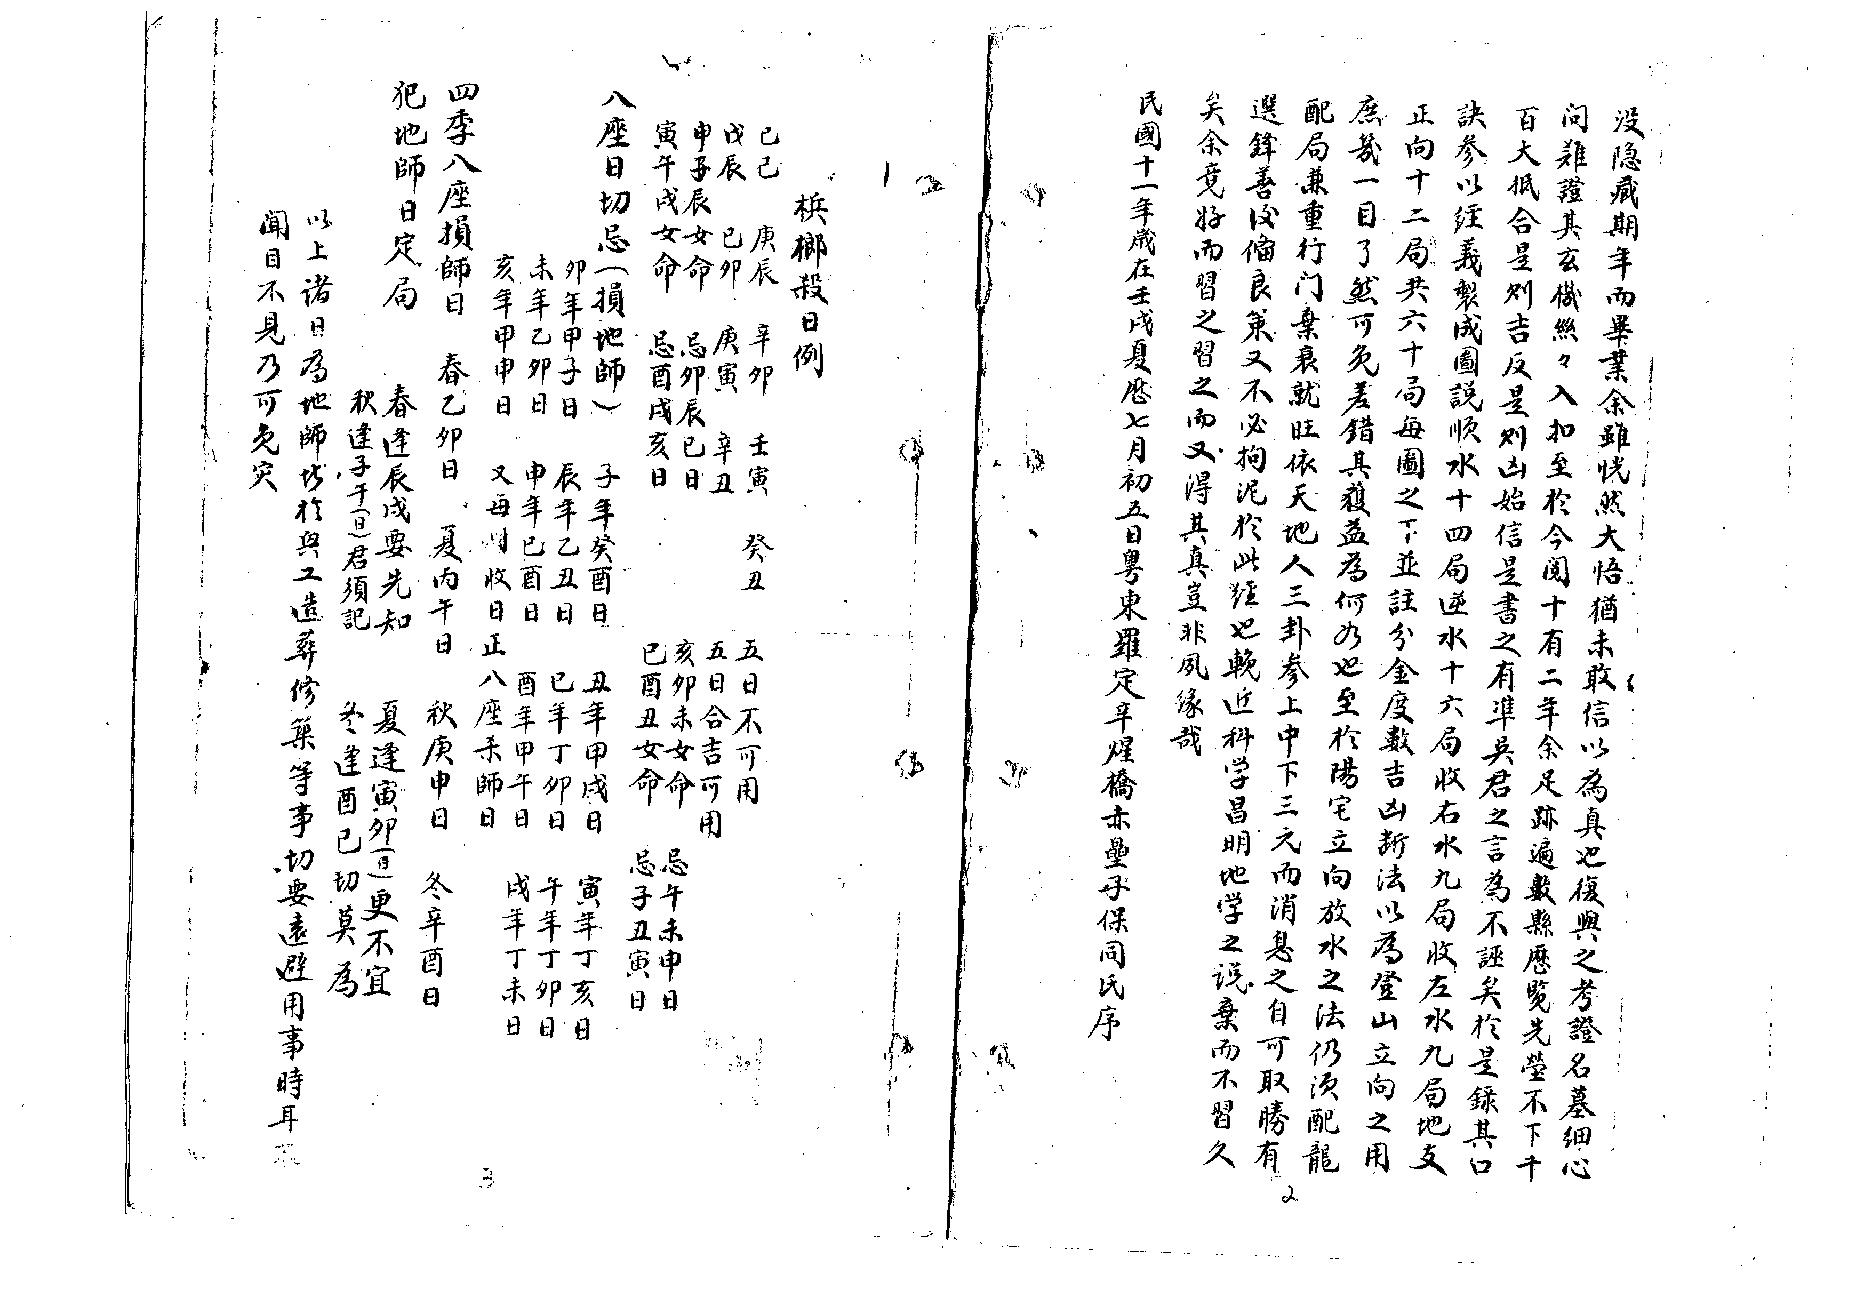 没隐藏期年而畢業余雖恍然大悟猶未敢信以為真也復與之考證名墓細心
问难證其玄機絲々入扣至於今閱十有二年余足跡遍數縣歷覧先塋不下千
百大抵合是则吉反是则凶始信是書之有準吳君之言為不誣矣於是錄其口
訣参以经義製成圖説順水十四局逆水十六局收右水九局收左水九局地支
正向十二局共六十局每圖之下並註分金度数吉凶断法以為登山立向之用
庶幾一目了然可免差錯其獲益為何如也至於陽宅立向放水之法仍须配龍
配局兼重行门棄衰就旺依天地人三卦参上中下三元而消息之自可取勝有
選鋒善後偹良策又不必拘泥於此經也輓近科学昌明地学之说棄而不習久
矣余竟好而習之習之而又得其真豈非夙缘哉
民國十一年歲在壬戌夏歷七月初五日粤東羅定辛煋橋赤壘子保同氏序
2
梹榔殺日例
己巳 庚辰 辛卯 壬寅 癸丑 五日不可用
戊辰 己卯 庚寅 辛丑 五日合吉可用
申子辰女命 忌卯辰巳日 亥卯未女命 忌午未申日
寅午戌女命 忌酉戌亥日 巳酉丑女命 忌子丑寅日
八座日切忌(損地師) 子年癸酉日 丑年甲戌日 寅年丁亥日
卯年甲子日 辰年乙丑日 巳年丁卯日 午年丁卯日
未年乙卯日 申年巳酉日 酉年甲午日 戌年丁未日
亥年甲申日 又每月收日正八座杀師日
四季八座損師日 春乙卯日 夏丙午日 秋庚申日 冬辛酉日
犯地師日定局 春逢辰戌要先知 夏逢寅卯(日)更不宜
秋逢子午(日)君須記 冬逢酉巳切莫為
以上诸日為地師於與工造葬修築等事切要遠避用事時耳
聞目不見乃可免灾
3